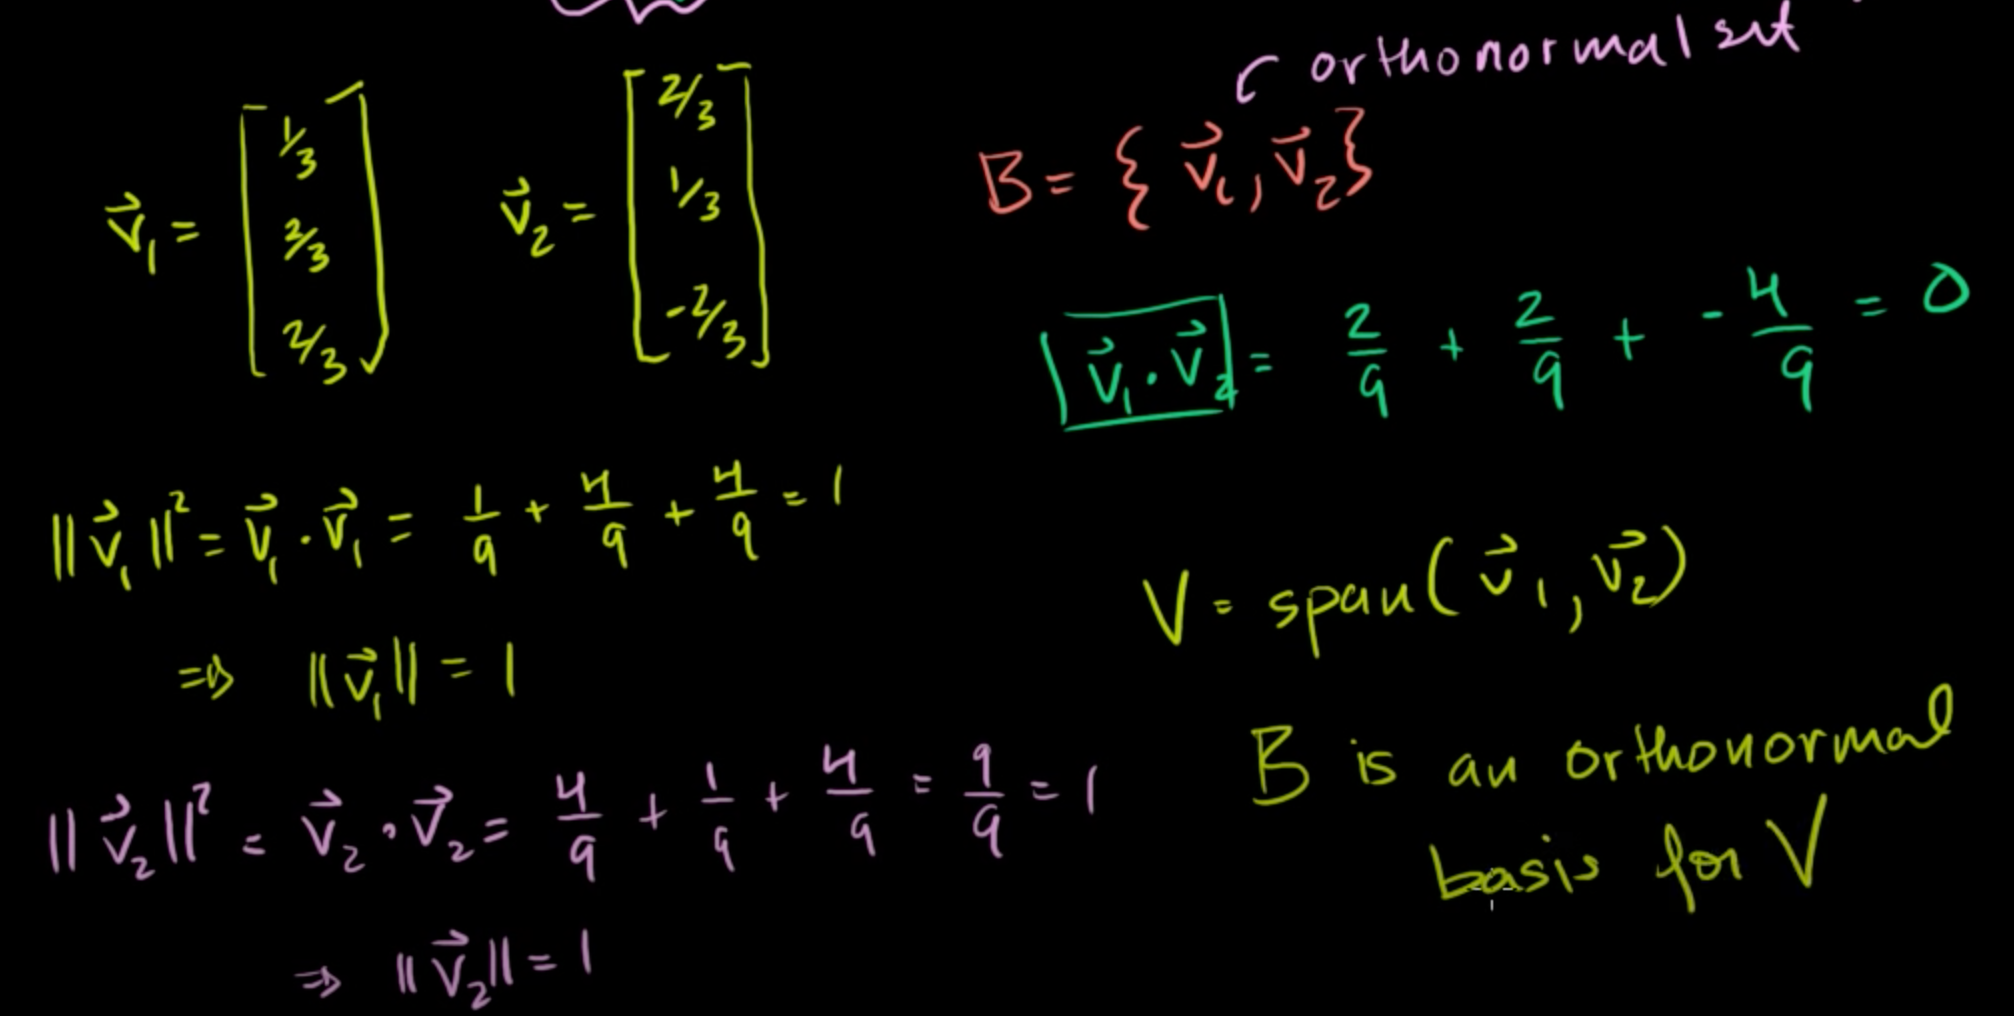 orthonormal set
v⃗₁ = [1/3 2/3 2/3]
v⃗₂ = [2/3 1/3 -2/3]
B = { v⃗₁, v⃗₂ }
v⃗₁ · v⃗₂ = 2/9 + 2/9 + -4/9 = 0
||v⃗₁||² = v⃗₁ · v⃗₁ = 1/9 + 4/9 + 4/9 = 1
⇒ ||v⃗₁|| = 1
V = span(v⃗₁, v⃗₂)
||v⃗₂||² = v⃗₂ · v⃗₂ = 4/9 + 1/9 + 4/9 = 9/9 = 1
⇒ ||v⃗₂|| = 1
B is an orthonormal
basis for V